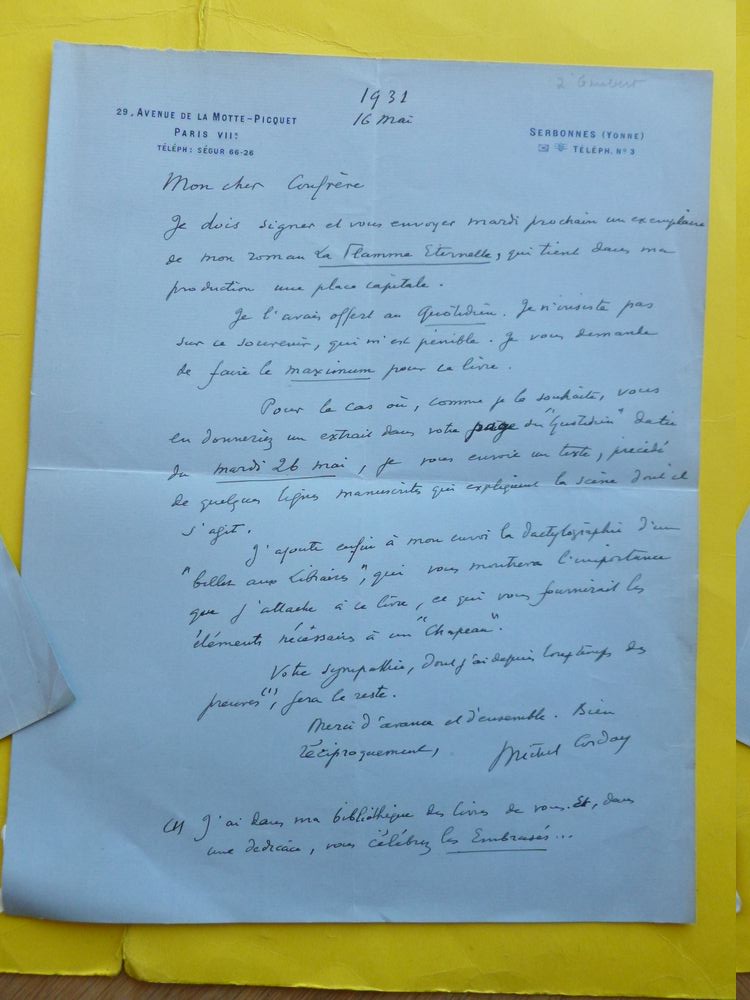 1931
16 mai
29, AVENUE DE LA MOTTE-PICQUET
PARIS VIIE
TÉLÉPH: SÉGUR 66-26
SERBONNES (YONNE)
TÉLÉPH. Nº 3
Mon cher Confrère
Je dois signer et vous envoyer mardi prochain un exemplaire
de mon roman La Flamme Eternelle, qui tient dans ma
production une place capitale.
Je l'avais offert au Quotidien. Je n'insiste pas
sur ce souvenir, qui m'est pénible. Je vous demande
de faire le maximum pour ce livre.
Pour le cas où, comme je le souhaite, vous
en donneriez un extrait dans votre page du "Quotidien" datée
du mardi 26 mai, je vous envoie un texte, précédé
de quelques lignes manuscrites qui expliquent la scène dont il
s'agit.
J'ajoute enfin à mon envoi la dactylographie d'un
"billet aux Libraires", qui vous montrera l'importance
que j'attache à ce livre, ce qui vous fournirait les
éléments nécessaires à un "Chapeau".
Votre sympathie, dont j'ai depuis longtemps des
preuves (1), fera le reste.
Merci d'avance et d'ensemble. Bien
réciproquement,
Michel Corday
(1) J'ai dans ma bibliothèque des livres de vous. Et, dans
une dédicace, vous célébrez les Embrasés...